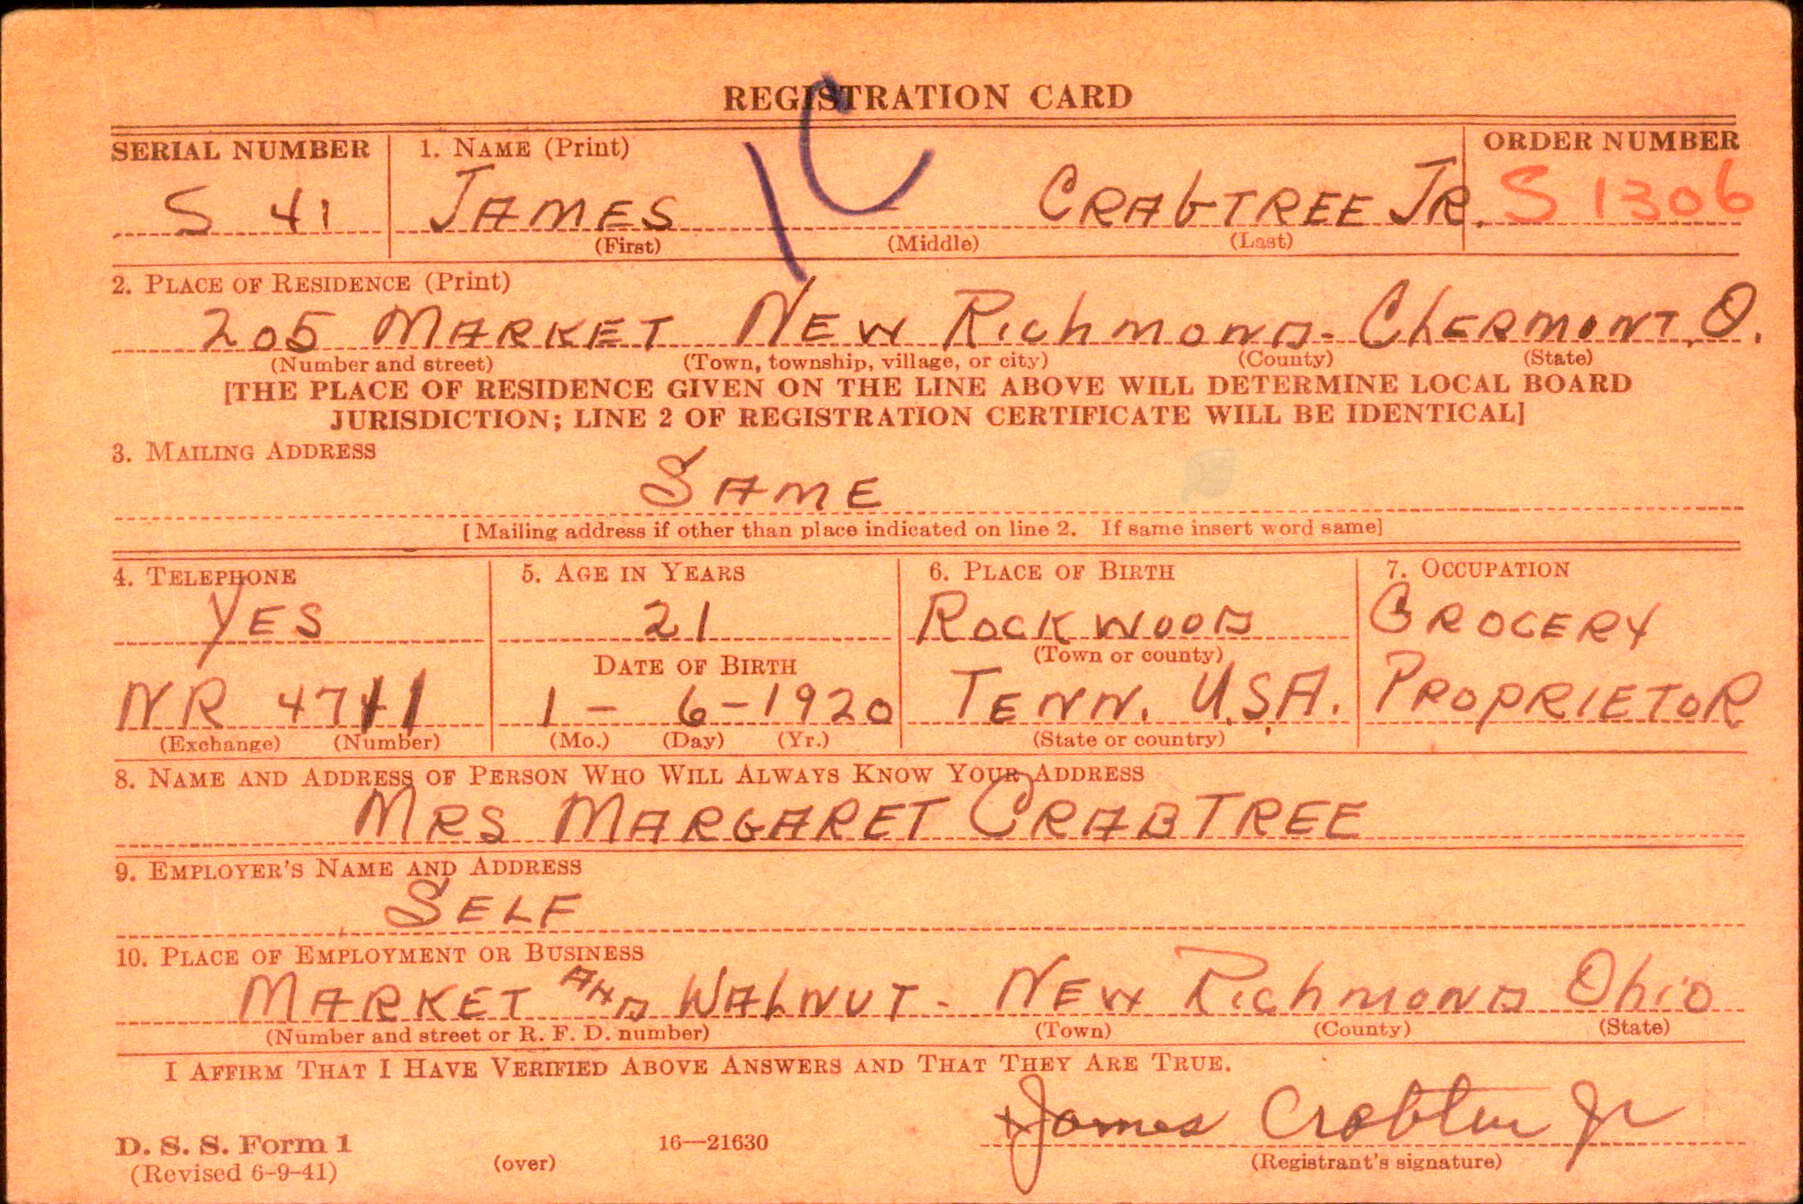 REGISTRATION CARD
1C
SERIAL NUMBER 1. NAME (Print) ORDER NUMBER
S 41 JAMES CRABTREE JR. S 1306
(First) (Middle) (Last)
2. PLACE OF RESIDENCE (Print)
205 MARKET NEW RICHMOND - CLERMONT, O.
(Number and street) (Town, township, village, or city) (County) (State)
[THE PLACE OF RESIDENCE GIVEN ON THE LINE ABOVE WILL DETERMINE LOCAL BOARD
JURISDICTION; LINE 2 OF REGISTRATION CERTIFICATE WILL BE IDENTICAL]
3. MAILING ADDRESS
SAME
[Mailing address if other than place indicated on line 2. If same insert word same]
4. TELEPHONE 5. AGE IN YEARS 6. PLACE OF BIRTH 7. OCCUPATION
YES 21 ROCKWOOD GROCERY
DATE OF BIRTH (Town or county)
NR 4711 1 - 6 - 1920 TENN. U.S.A. PROPRIETOR
(Exchange) (Number) (Mo.) (Day) (Yr.) (State or country)
8. NAME AND ADDRESS OF PERSON WHO WILL ALWAYS KNOW YOUR ADDRESS
MRS MARGARET CRABTREE
9. EMPLOYER'S NAME AND ADDRESS
SELF
10. PLACE OF EMPLOYMENT OR BUSINESS
MARKET AND WALNUT - NEW RICHMOND OHIO
(Number and street or R. F. D. number) (Town) (County) (State)
I AFFIRM THAT I HAVE VERIFIED ABOVE ANSWERS AND THAT THEY ARE TRUE.
James Crabtree Jr
D. S. S. Form 1 16—21630
(Revised 6-9-41) (over) (Registrant's signature)